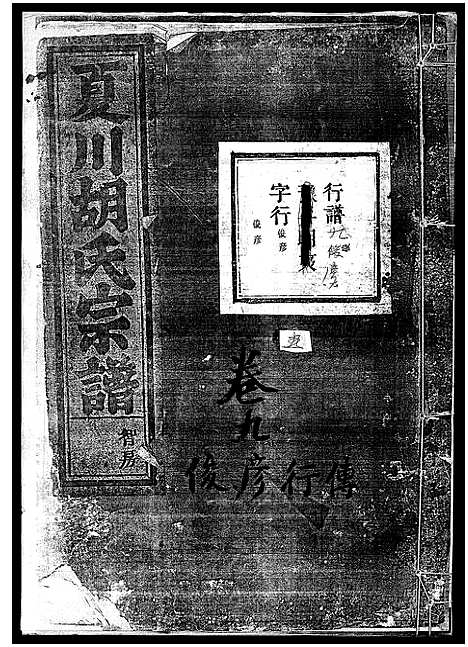 夏川胡氏宗譜
智房
行譜九俊彥
字行俊彥
俊彥
卷九
俊彥行傳